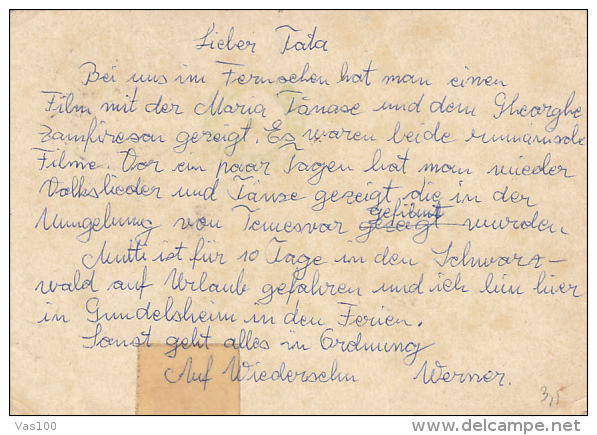 Lieber Tata
Bei uns im Fernsehen hat man einen
Film mit der Maria Tănase und dem Gheorghe
Zamfirescu gezeigt. Es waren beide rumänische
Filme. Vor ein paar Tagen hat man wieder
Volkslieder und Tänze gezeigt die in der
gefilmt
Umgebung von Temesvar gezeigt wurden
Mutti ist für 10 Tage in den Schwarz-
wald auf Urlaub gefahren und ich bin hier
in Gundelsheim in den Ferien.
Sonst geht alles in Ordnung
Auf Wiedersehn Werner.
3,5
Vas100
delcampe.net